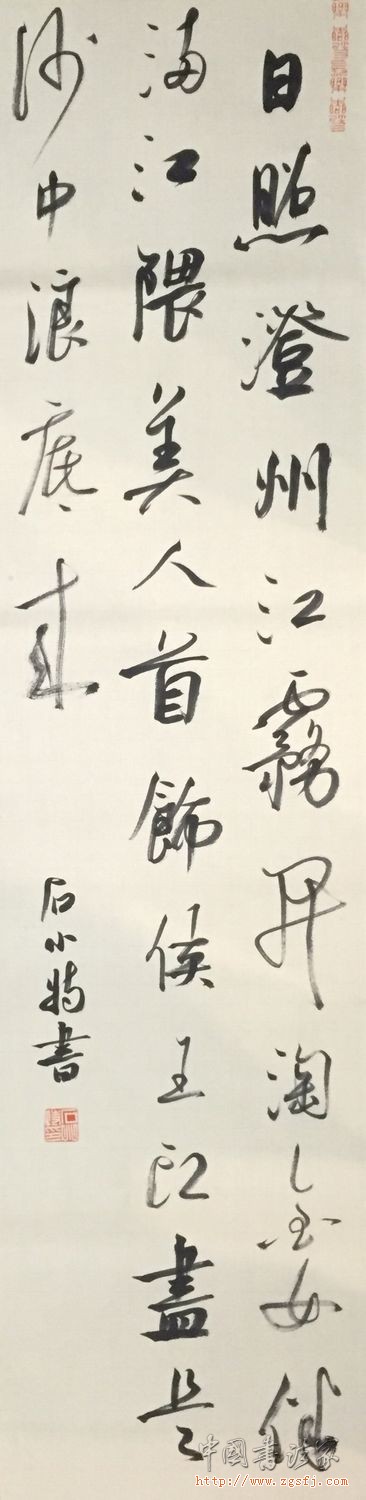 日照澄州江霧開淘金女伴
滿江隈美人首飾侯王印盡是
沙中浪底來
石小書
中國書法家
http://www.zgsfj.com